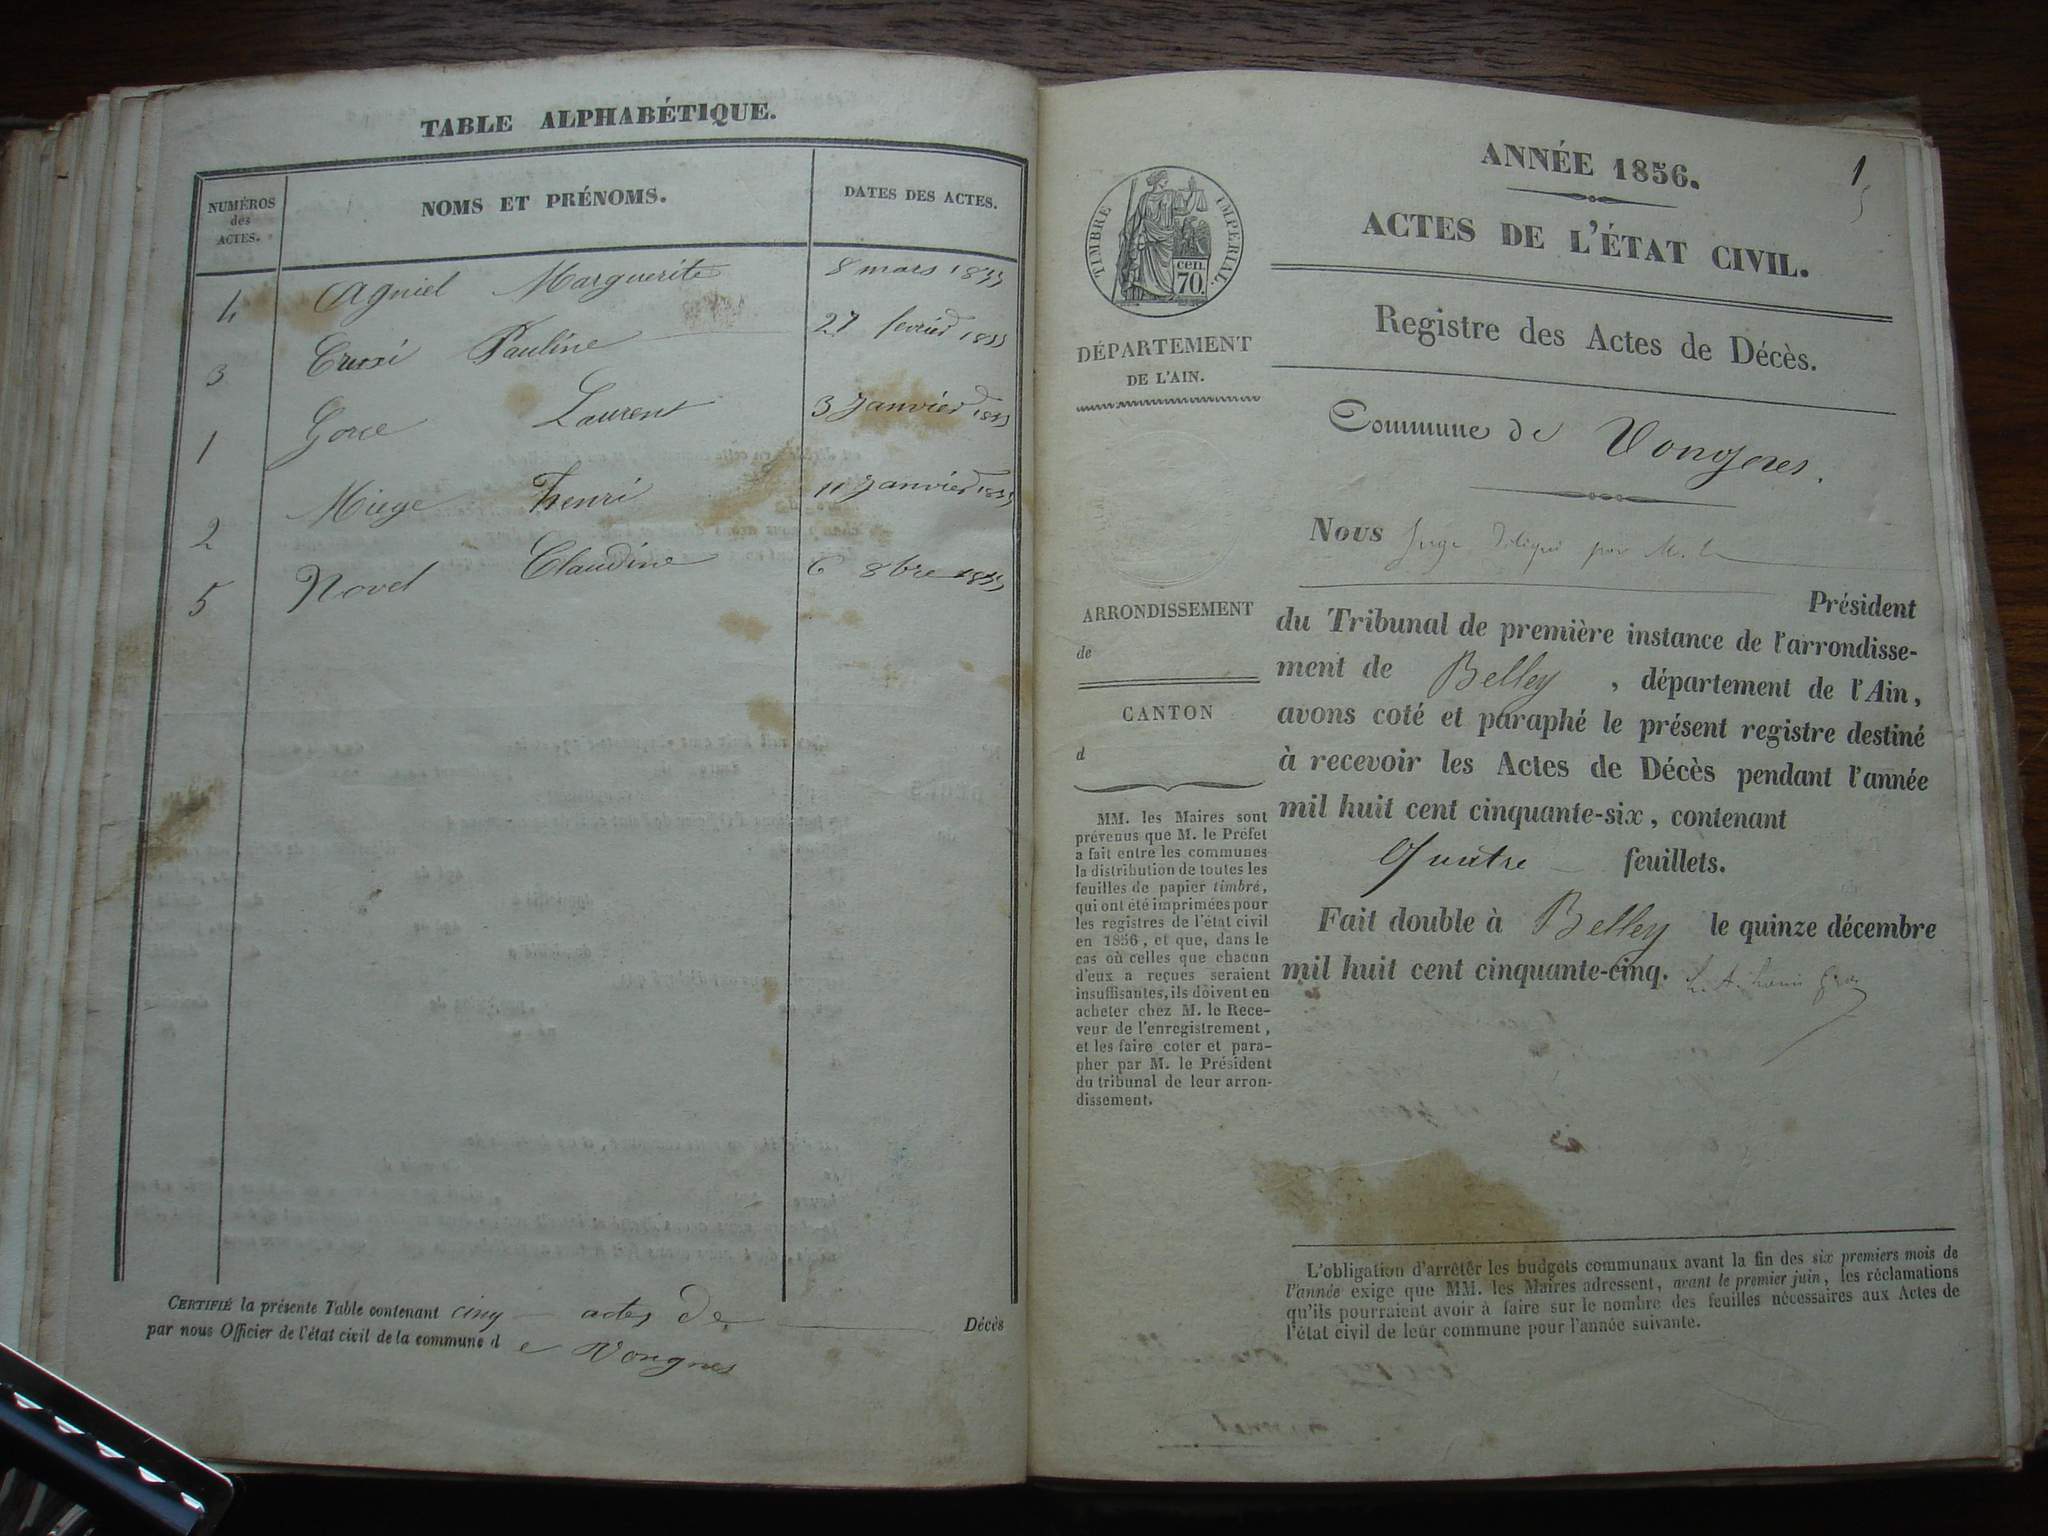 TABLE ALPHABÉTIQUE.
NUMÉROS des ACTES. NOMS ET PRÉNOMS. DATES DES ACTES.
4 Agniel Marguerite 8 mars 1855
3 Pauline 27 1855
1 Laurent 3 Janvier 1855
2 Miege henri 11 Janvier 1855
5 Novel Claudine 6 8bre 1855
CERTIFIÉ la présente Table contenant cinq actes de Décès
par nous Officier de l'état civil de la commune d e Vongnes
1
ANNÉE 1856.
ACTES DE L'ÉTAT CIVIL.
TIMBRE IMPERIAL.
cen. 70.
Registre des Actes de Décès.
DÉPARTEMENT
DE L'AIN.
Commune de Vongnes.
Nous Juge délégué par M. le
Président
du Tribunal de première instance de l'arrondisse-
ment de Belley, département de l'Ain,
avons coté et paraphé le présent registre destiné
à recevoir les Actes de Décès pendant l'année
mil huit cent cinquante-six, contenant
Quatre feuillets.
Fait double à Belley le quinze décembre
mil huit cent cinquante-cinq.
ARRONDISSEMENT
de
CANTON
d
MM. les Maires sont
prévenus que M. le Préfet
a fait entre les communes
la distribution de toutes les
feuilles de papier timbré,
qui ont été imprimées pour
les registres de l'état civil
en 1856, et que, dans le
cas où celles que chacun
d'eux a reçues seraient
insuffisantes, ils doivent en
acheter chez M. le Rece-
veur de l'enregistrement,
et les faire coter et para-
pher par M. le Président
du tribunal de leur arron-
dissement.
L'obligation d'arrêter les budgets communaux avant la fin des six premiers mois de
l'année exige que MM. les Maires adressent, avant le premier juin, les réclamations
qu'ils pourraient avoir à faire sur le nombre des feuilles nécessaires aux Actes de
l'état civil de leur commune pour l'année suivante.